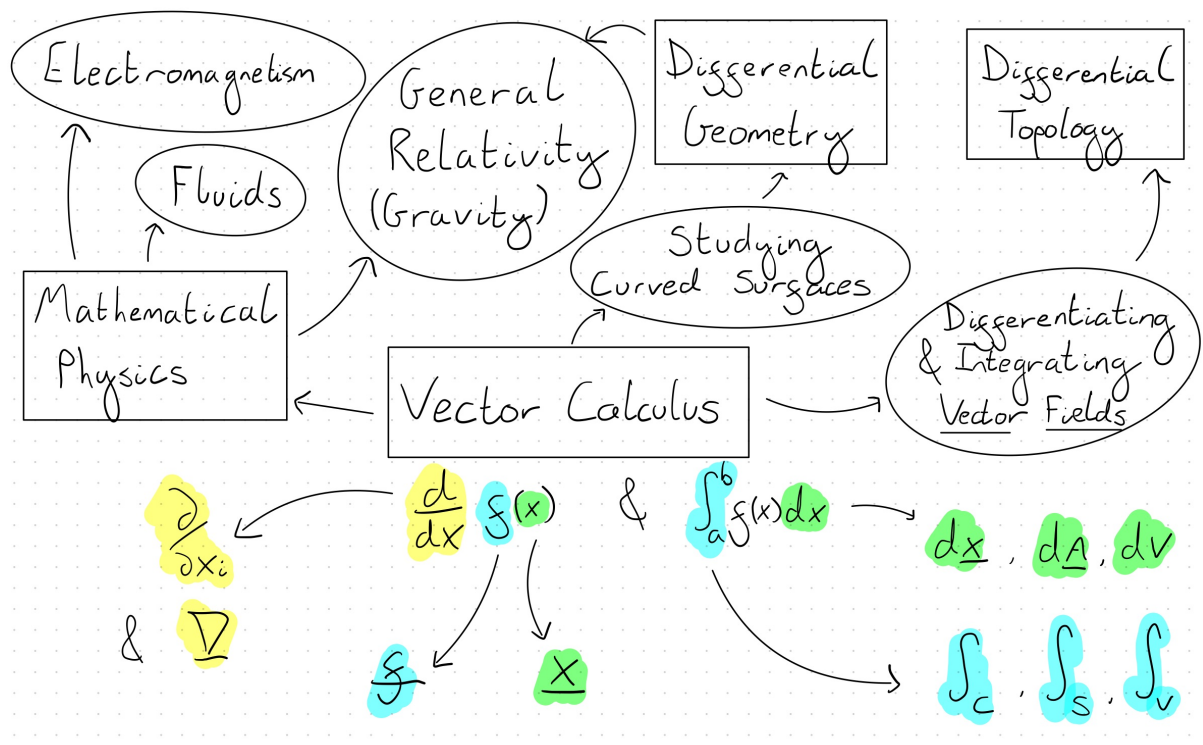 Electromagnetism
Fluids
General
Relativity
(Gravity)
Differential
Geometry
Differential
Topology
Studying
Curved Surfaces
Mathematical
Physics
Vector Calculus
Differentiating
& Integrating
Vector Fields
∂/∂xᵢ
& ∇
d/dx f(x) & ∫ₐᵇ f(x)dx
f
x
dx, dA, dV
∫_C, ∫_S, ∫_V